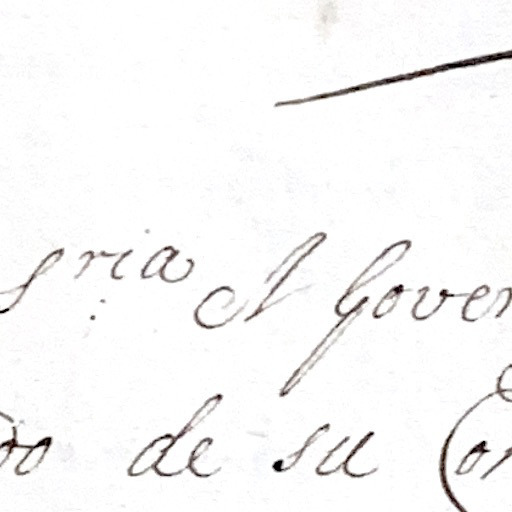 S.ria el Gover
do de su Con